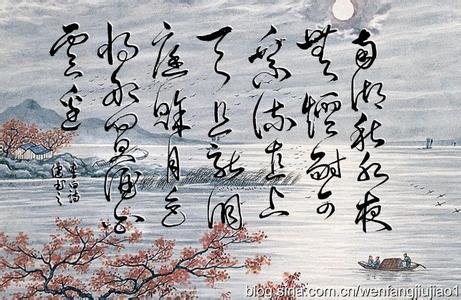 南湖秋水夜
無煙耐可
乘流直上
天且就洞
庭賒月色
將船買酒白
雲邊
李白詩
blog.sina.com.cn/wenfangjiujiao1